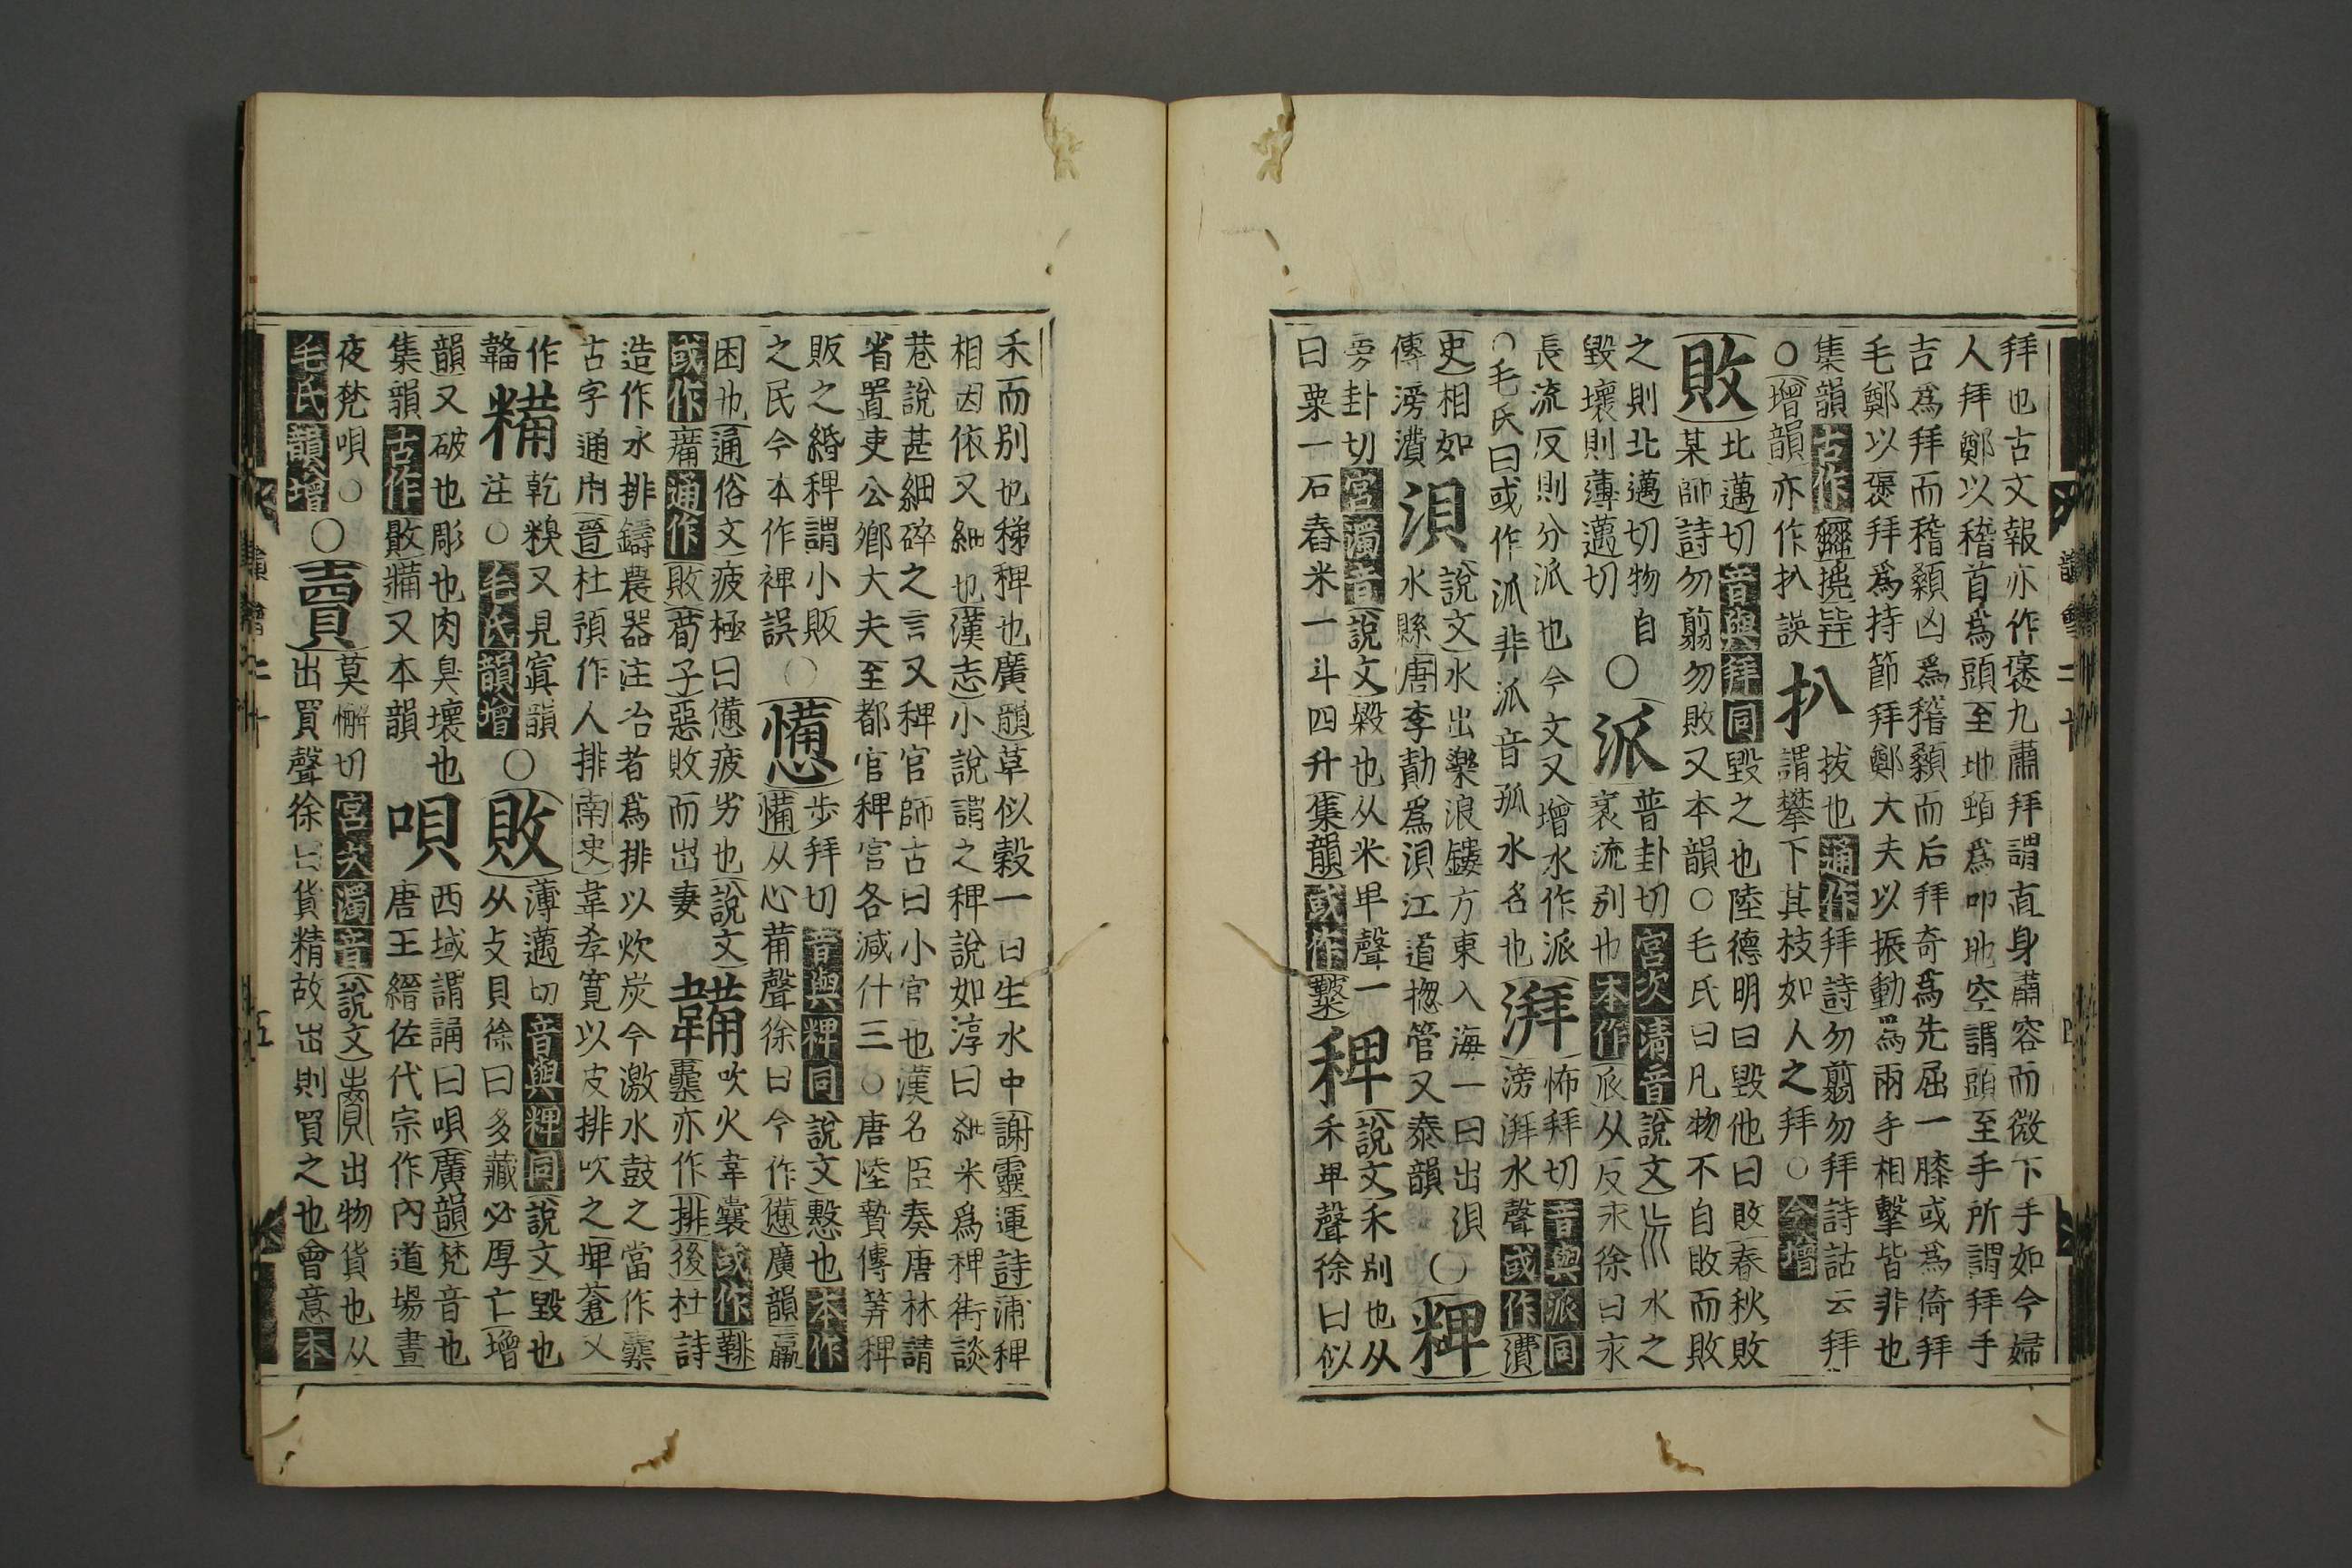 拜也古文報亦作褒九肅拜謂直身肅容而微下手如今婦
人拜鄭以稽首爲頭至地頓爲叩地空謂頭至手所謂拜手
吉爲拜而稽顙凶爲稽顙而后拜奇爲先屈一膝或爲倚拜
毛鄭以褒拜爲持節拜鄭大夫以振動爲兩手相擊皆非也
集韻古作 扒拔也通作拜詩勿翦勿拜詩詁云拜
○增韻亦作扒誤 謂攀下其枝如人之拜○今增
敗北邁切音與拜同毀之也陸德明曰毀他曰敗春秋敗
某師詩勿翦勿敗又本韻○毛氏曰凡物不自敗而敗
之則北邁切物自 ○派普卦切宮次清音說文 水之
毀壞則薄邁切 衺流別也本作𠂢从反永徐曰永
長流反則分派也今文又增水作派湃怖拜切音與派同
○毛氏曰或作泒非泒音孤水名也 滂湃水聲或作濆
史相如 浿說文水出樂浪鏤方東入海一曰出浿 ○粺
傳滂濆 水縣唐李勣爲浿江道揔管又泰韻
旁卦切宮濁音說文毇也从米卑聲一 稗說文禾別也从
曰粟一石舂米一斗四升集韻或作 禾卑聲徐曰似
禾而别也稊稗也廣韻草似穀一曰生水中謝靈運詩蒲稗
相因依又細也漢志小說謂之稗說如淳曰細米爲稗街談
巷說甚細碎之言又稗官師古曰小官也漢名臣奏唐林請
省置吏公卿大夫至都官稗官各減什三○唐陸贄傳筭稗
販之緡稗謂小販 ○憊步拜切音與粺同說文 也本作
之民今本作裨誤 从心葡聲徐曰今作憊廣韻羸
困也通俗文疲極曰憊疲劣也說文 韛吹火韋囊或作
或作 通作敗荀子惡敗而出妻 亦作排後杜詩
造作水排鑄農器注冶者爲排以炊炭今激水鼓之當作
古字通用晉杜預作人排南史韋孝寬以皮排吹之 又
作 糒乾糗又見寘韻 ○敗薄邁切音與粺同說文毀也
注○毛氏韻增 从攴貝徐曰多藏必厚亡增
韻又破也彫也肉臭壞也 唄西域謂誦曰唄廣韻梵音也
集韻古作 又本韻 唐王縉佐代宗作內道場晝
夜梵唄○ ○賣莫懈切宮次濁音說文 出物貨也从
毛氏韻增 出買聲徐曰貨精故出則買之也會意本